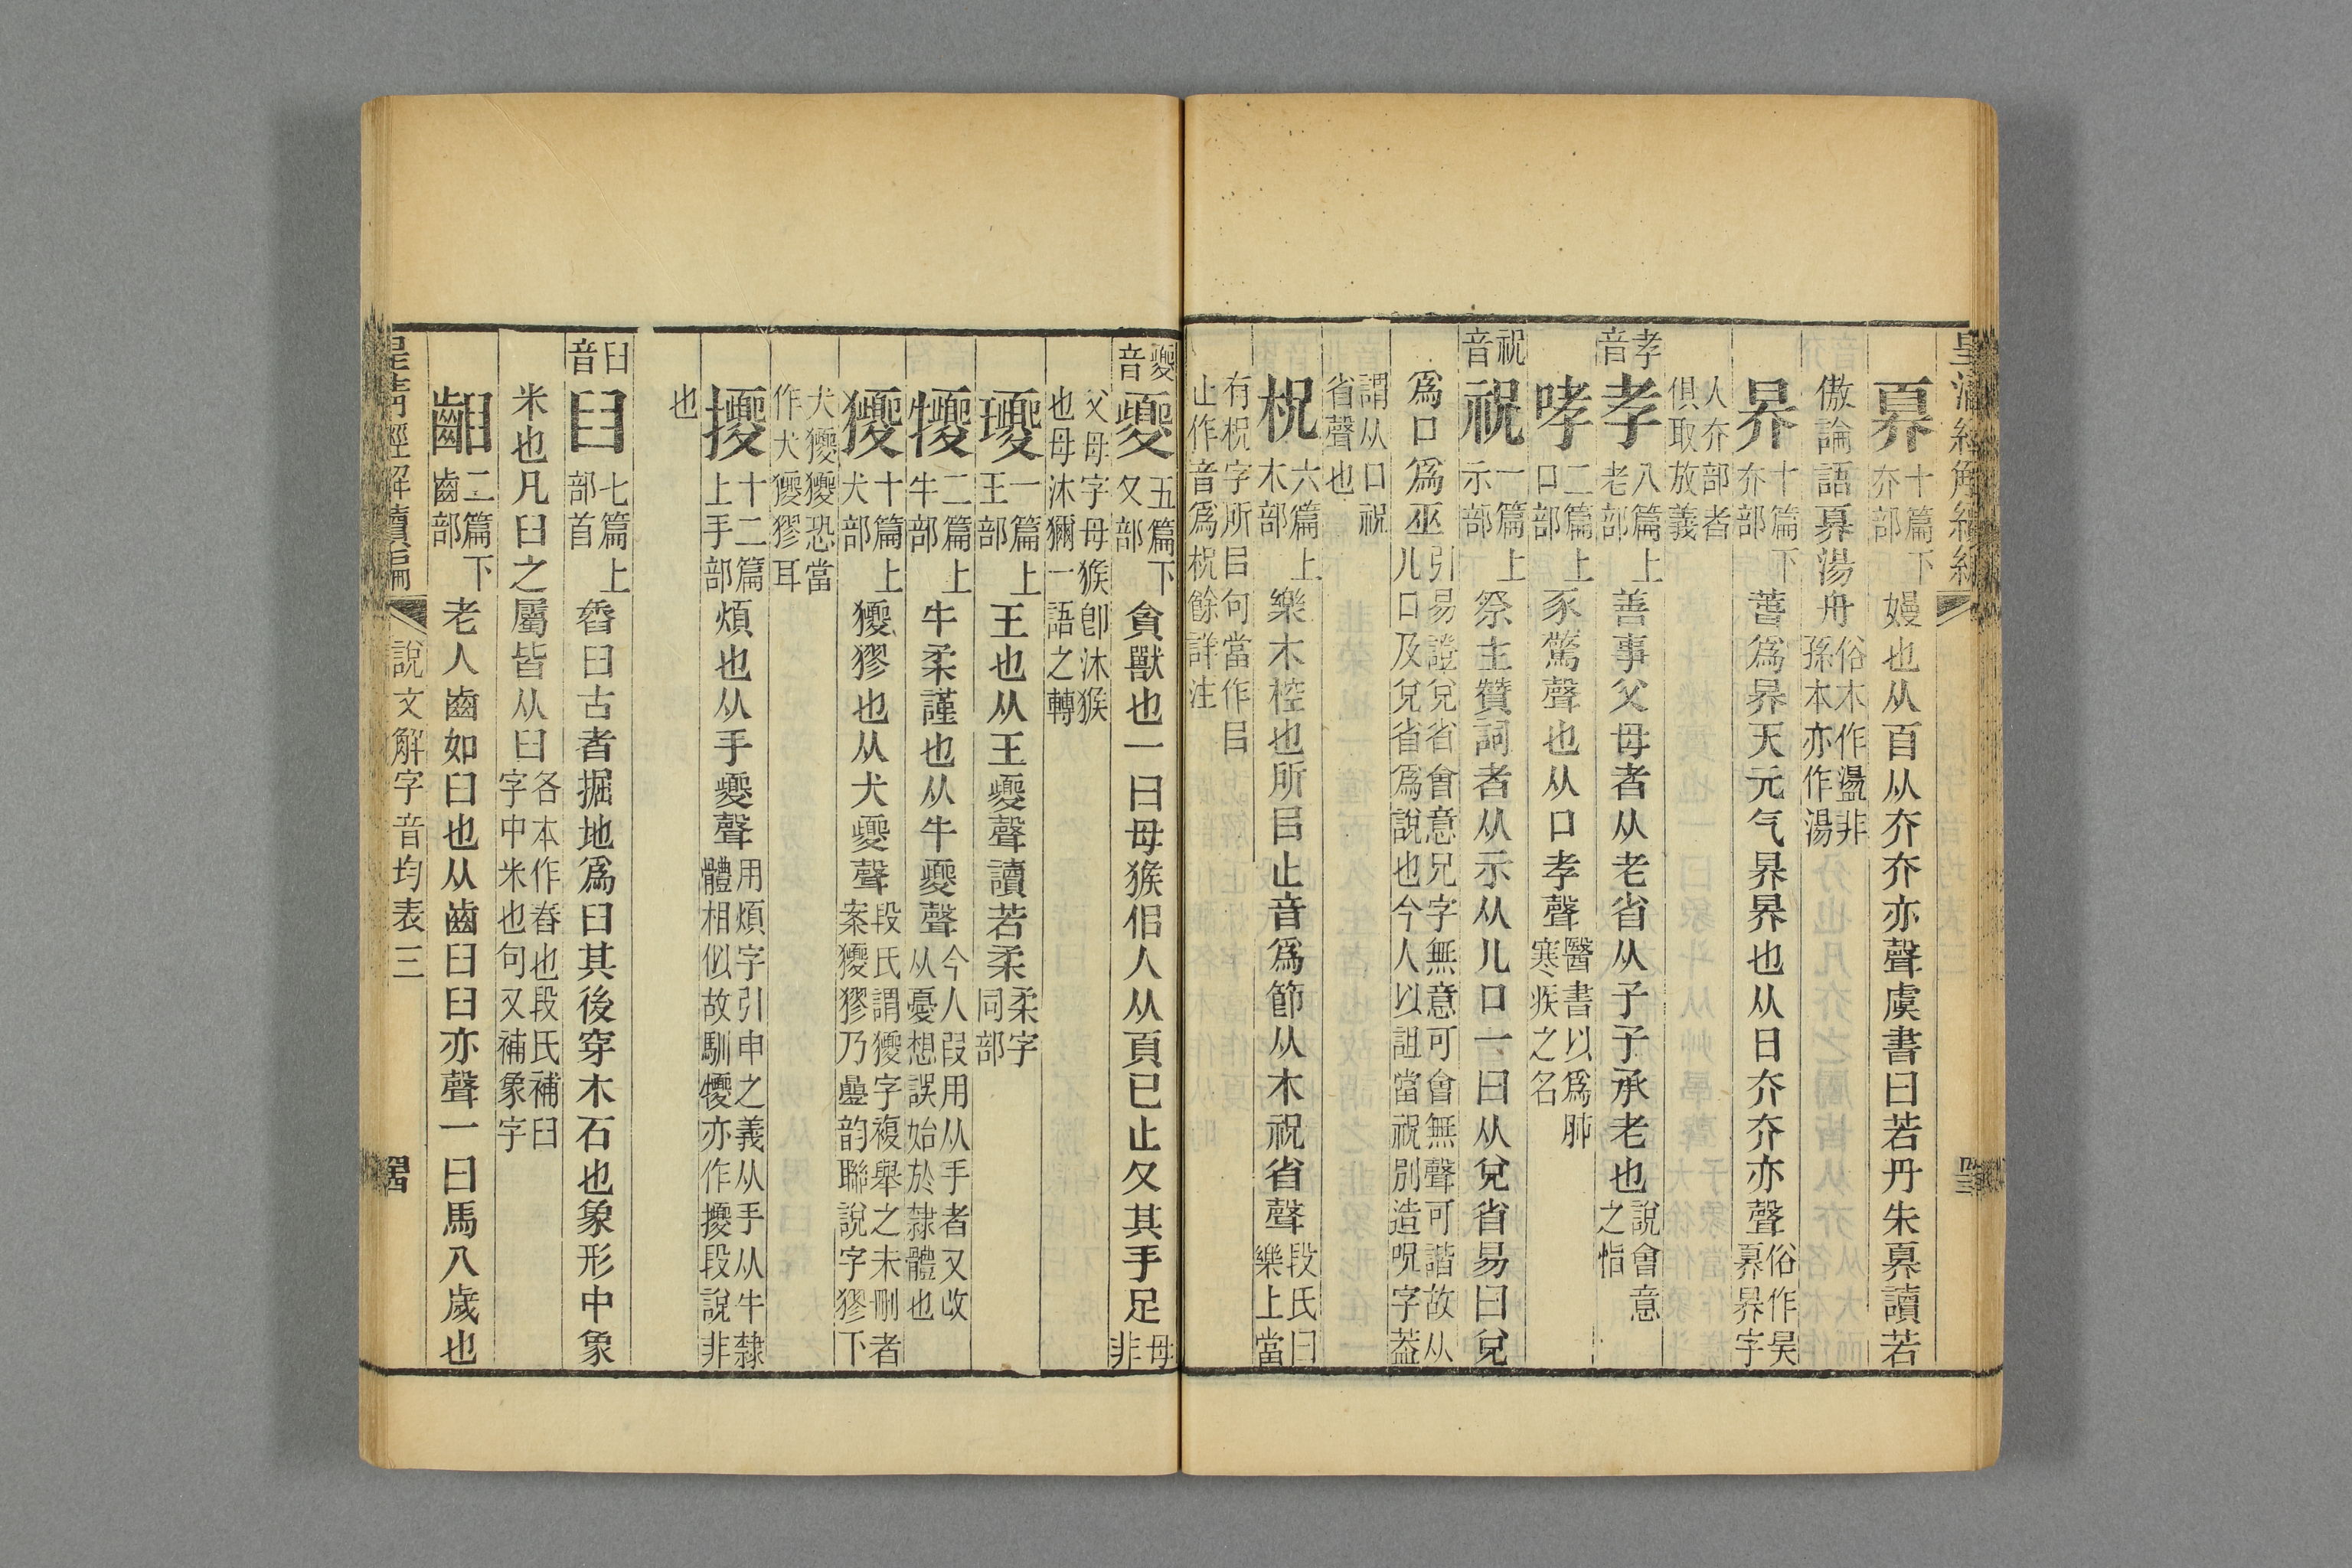 奡 十篇下夰部 嫚也从百从夰夰亦聲虞書曰若丹朱奡讀若
傲論語奡湯舟 俗本作盪非孫本亦作湯
界 十篇下夰部 舂爲昦天元气昦昦也从日夰夰亦聲 俗作昊奡昦字
人夰部者俱取放義
孝音 孝 八篇上老部 善事父母者从老省从子子承老也 說會意之恉
哮 二篇上口部 豕驚聲也从口孝聲 醫書以爲肺寒疾之名
祝音 祝 一篇上示部 祭主贊詞者从示从儿口一曰从兌省易曰兌
爲口爲巫 引易證兌省會意兄字無意可會無聲可諧故从儿口及兌省爲說也今人以詛當祝別造呪字葢
謂从口祝省聲也
柷 六篇上木部 樂木椌也所㠯止音爲節从木祝省聲 段氏曰樂上當
有柷字所㠯句當作㠯止作音爲柷餘詳注
夒音 夒 五篇下夊部 貪獸也一曰母猴佀人从頁巳止夊其手足 母非
父母字母猴卽沐猴也母沐獼一語之轉
瓇 一篇上王部 王也从王夒聲讀若柔 柔字同部
犪 二篇上牛部 牛柔謹也从牛夒聲 今人叚用从手者又改从憂想誤始於隸體也
獿 十篇上犬部 獿獿也从犬夒聲 段氏謂獿字複舉之未刪者案獿獿乃曡韵聯說字獿下
犬獿獿恐當作犬獿獿耳
擾 十二篇上手部 煩也从手夒聲 用煩字引申之義从手从牛隸體相似故馴犪亦作擾段說非
也
臼音 臼 七篇上部首 舂臼古者掘地爲臼其後穿木石也象形中象
米也凡臼之屬皆从臼 各本作舂也段氏補臼字中米也句又補象字
齨 二篇下齒部 老人齒如臼也从齒臼臼亦聲一曰馬八歲也
皇淸經解續編
說文解字音均表三